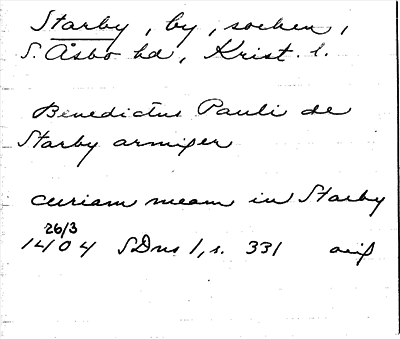 Starby, by, socken,
S. Åsbo hd, Krist. l.
Benedictus Pauli de
Starby armiger
curiam meam in Starby
26/3
1404 SDns 1, s. 331 avif